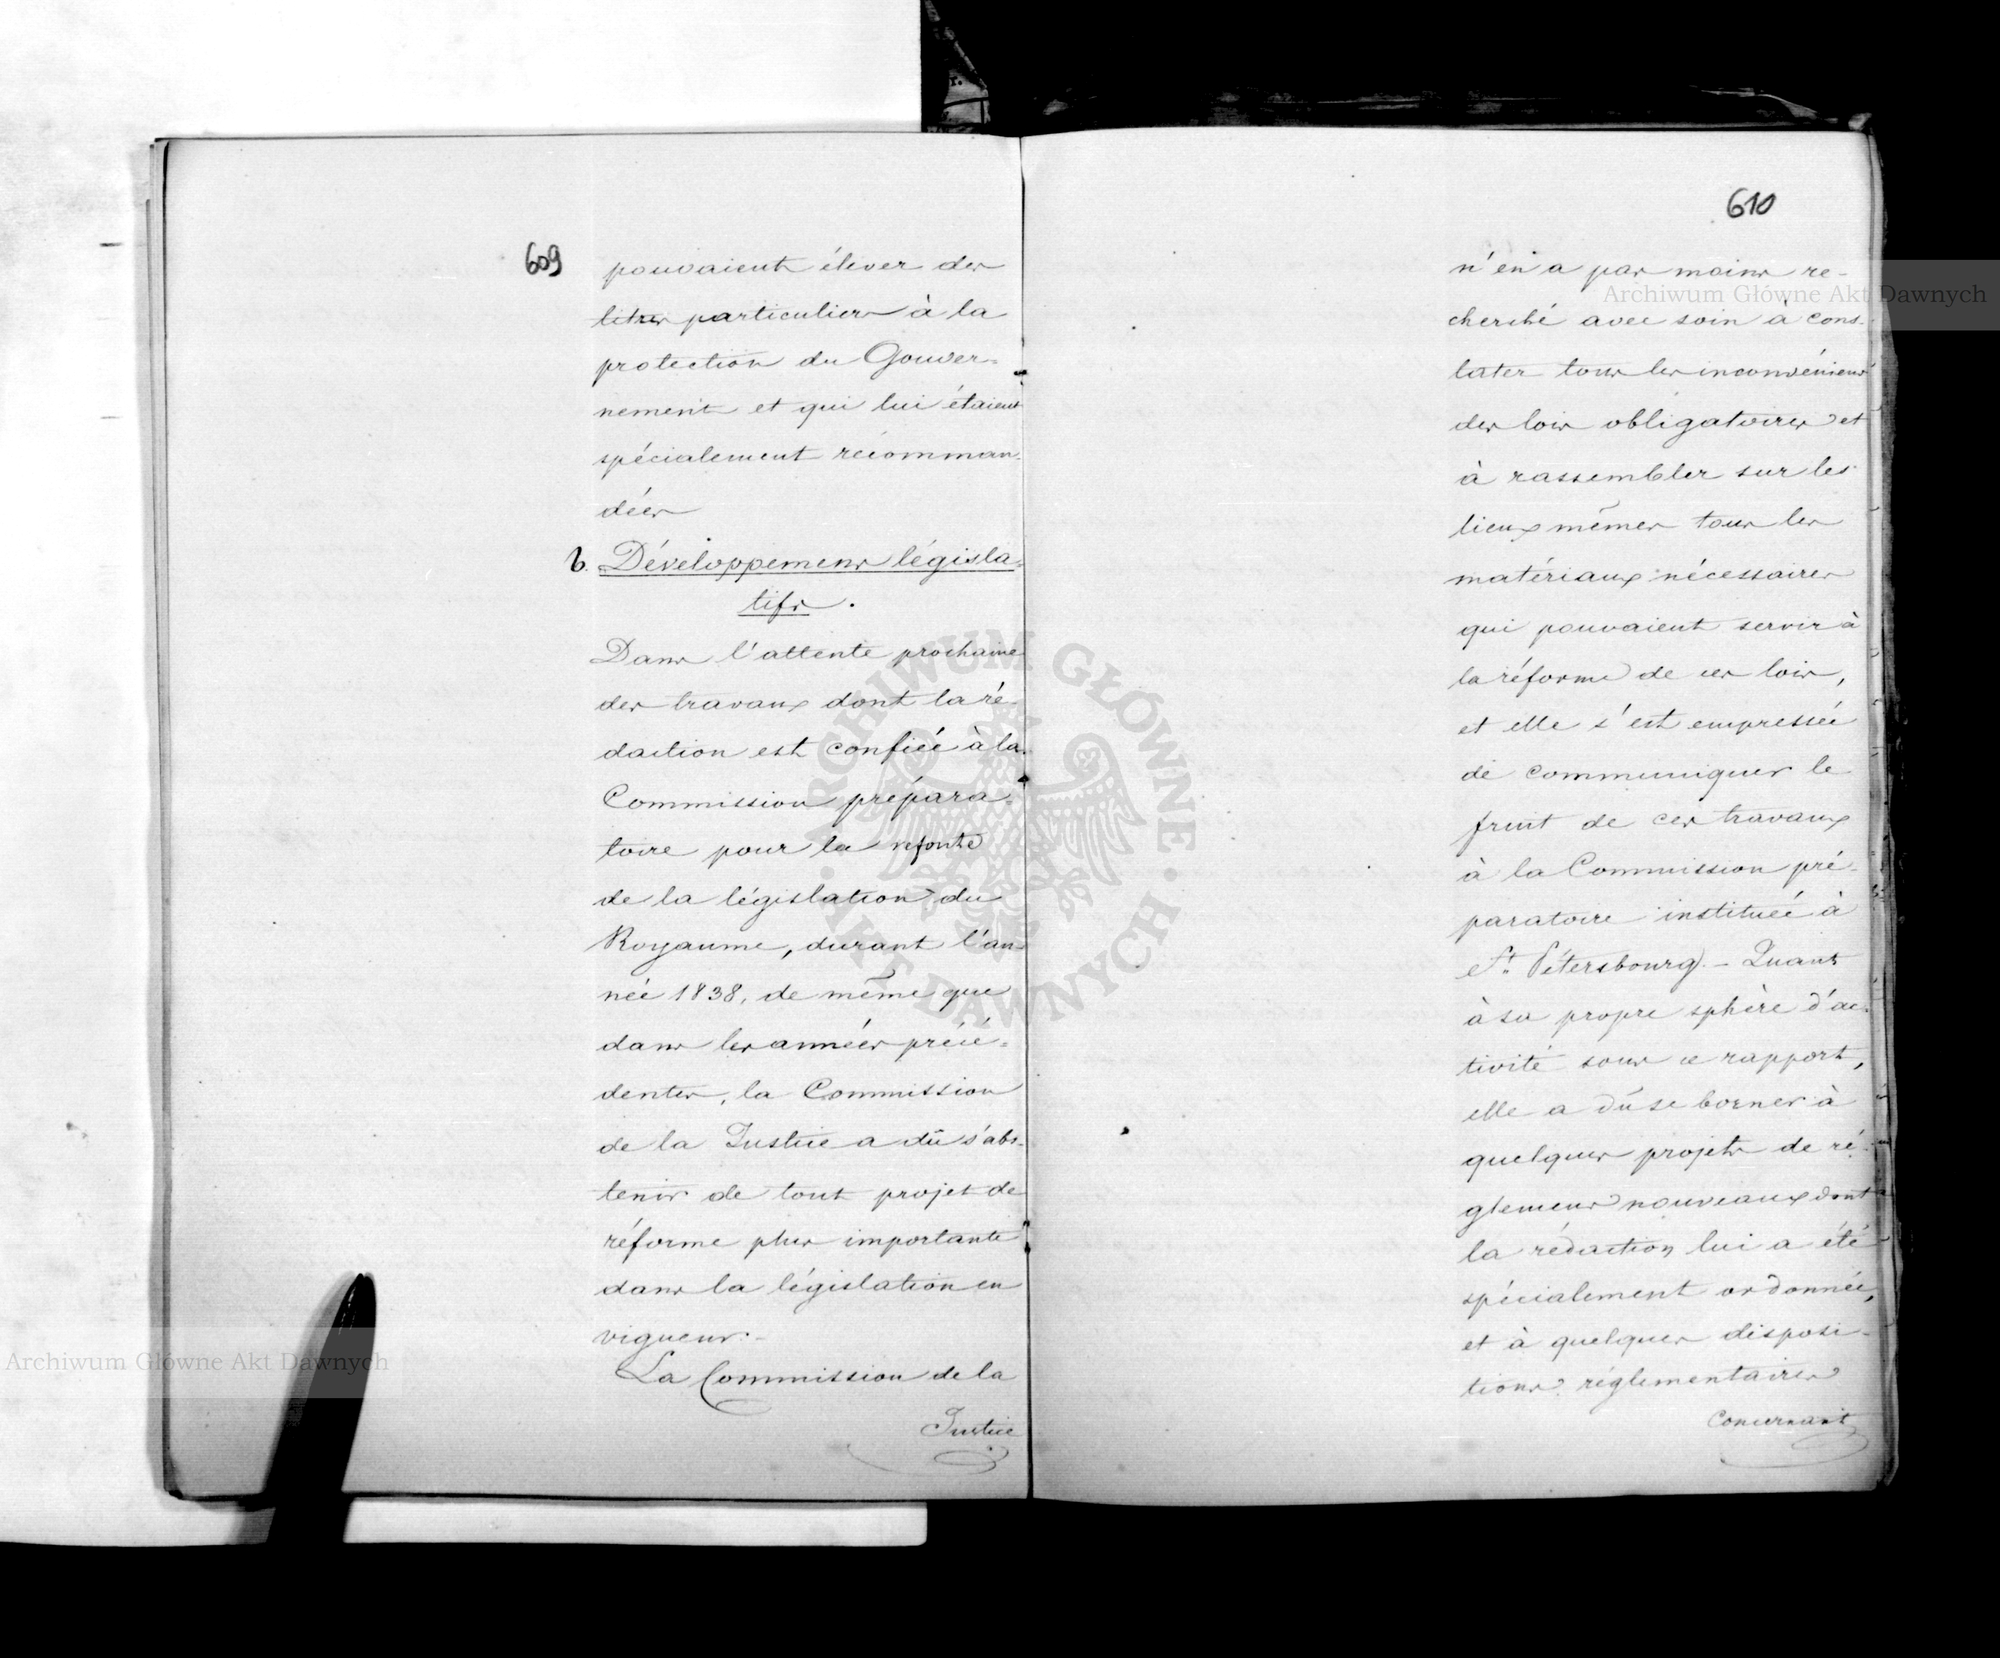 609
pouvaient élever des
titres particuliers à la
protection du Gouver=
nement et qui lui étaient
spécialement recomman-
dées
b. Développemens législa-
tifs.
Dans l'attente prochaine
des travaux dont la ré-
daction est confiée à la
Commission prépara-
toire pour la refonte
de la législation du
Royaume, durant l'an
née 1838, de même que
dans les années précé=
dentes, la Commission
de la Justice a dû s'abs-
tenir de tout projet de
réforme plus importante
dans la législation en
vigueur.-
La Commission de la
Justice
610
n'en a pas moins re-
cherché avec soin à cons-
tater tous les inconvéniens
des lois obligatoires et
à rassembler sur les
lieux mêmes tous les
matériaux nécessaires
qui pouvaient servir à
la réforme de ces lois,
et elle s'est empressée
de communiquer le
fruit de ces travaux
à la Commission pré-
paratoire instituée à
St. Pétersbourg. - Quant
à sa propre sphère d'ac-
tivité sous ce rapport,
elle a dû se borner à
quelques projets de ré-
glemens nouveaux dont
la rédaction lui a été
spécialement ordonnée,
et à quelques disposi-
tions réglementaires
concernant
Archiwum Główne Akt Dawnych
Archiwum Główne Akt Dawnych
ARCHIWUM GŁÓWNE · AKT DAWNYCH ·